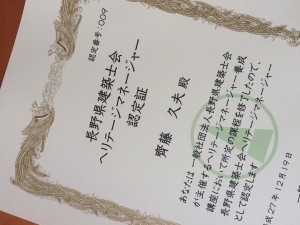 認定番号:009
長野県建築士会
ヘリテージマネージャー
認定証
齊藤 久夫 殿
あなたは一般社団法人長野県建築士会
が主催するヘリテージマネージャー養成
講座において所定の課程を修了したので、
長野県建築士会ヘリテージマネージャー
として認定します
平成27年12月19日